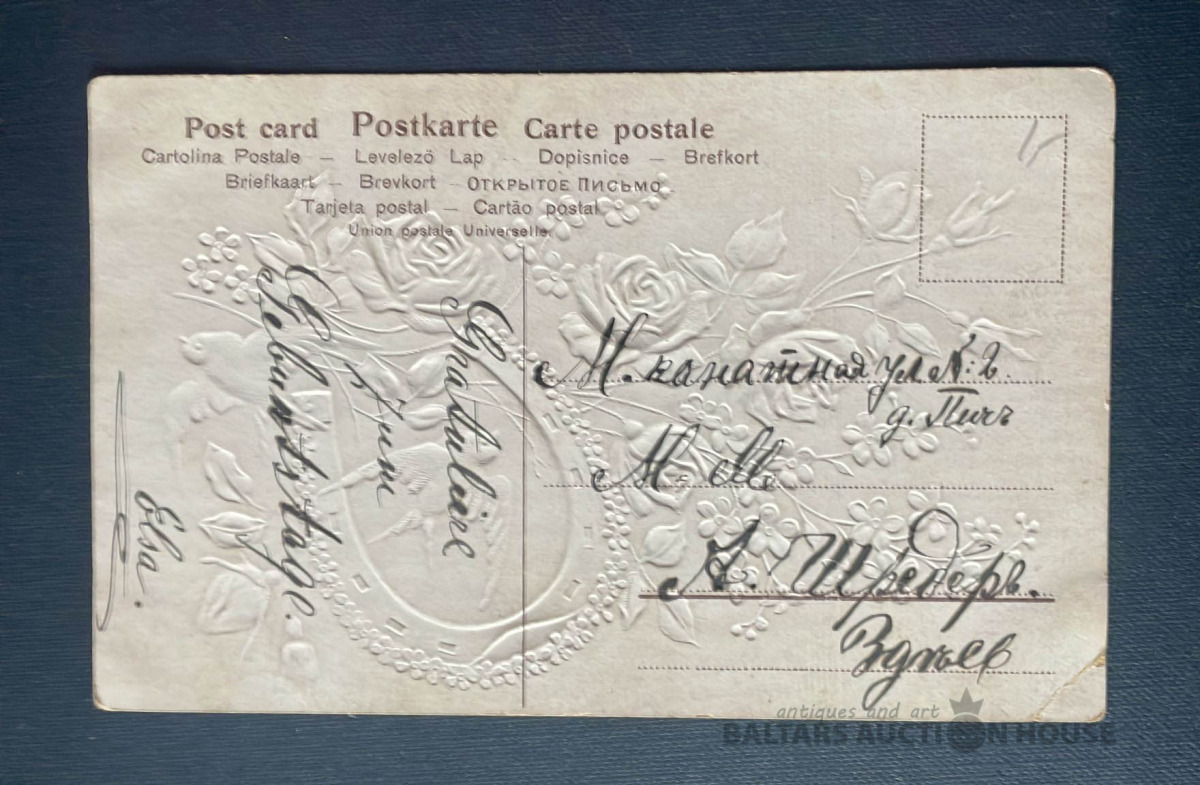 Post card Postkarte Carte postale
Cartolina Postale – Levelező Lap – Dopisnice – Brefkort
Briefkaart – Brevkort – ОТКРЫТОЕ ПИСЬМО
Tarjeta postal – Cartão postal
Union postale Universelle.
Gratuliere
zum
Geburtstage.
Elsa.
М. канатная ул № 2.
д. Пичъ
M-elle
А. Шредеръ.
Здѣсь
antiques and art
BALTARS AUCTION HOUSE